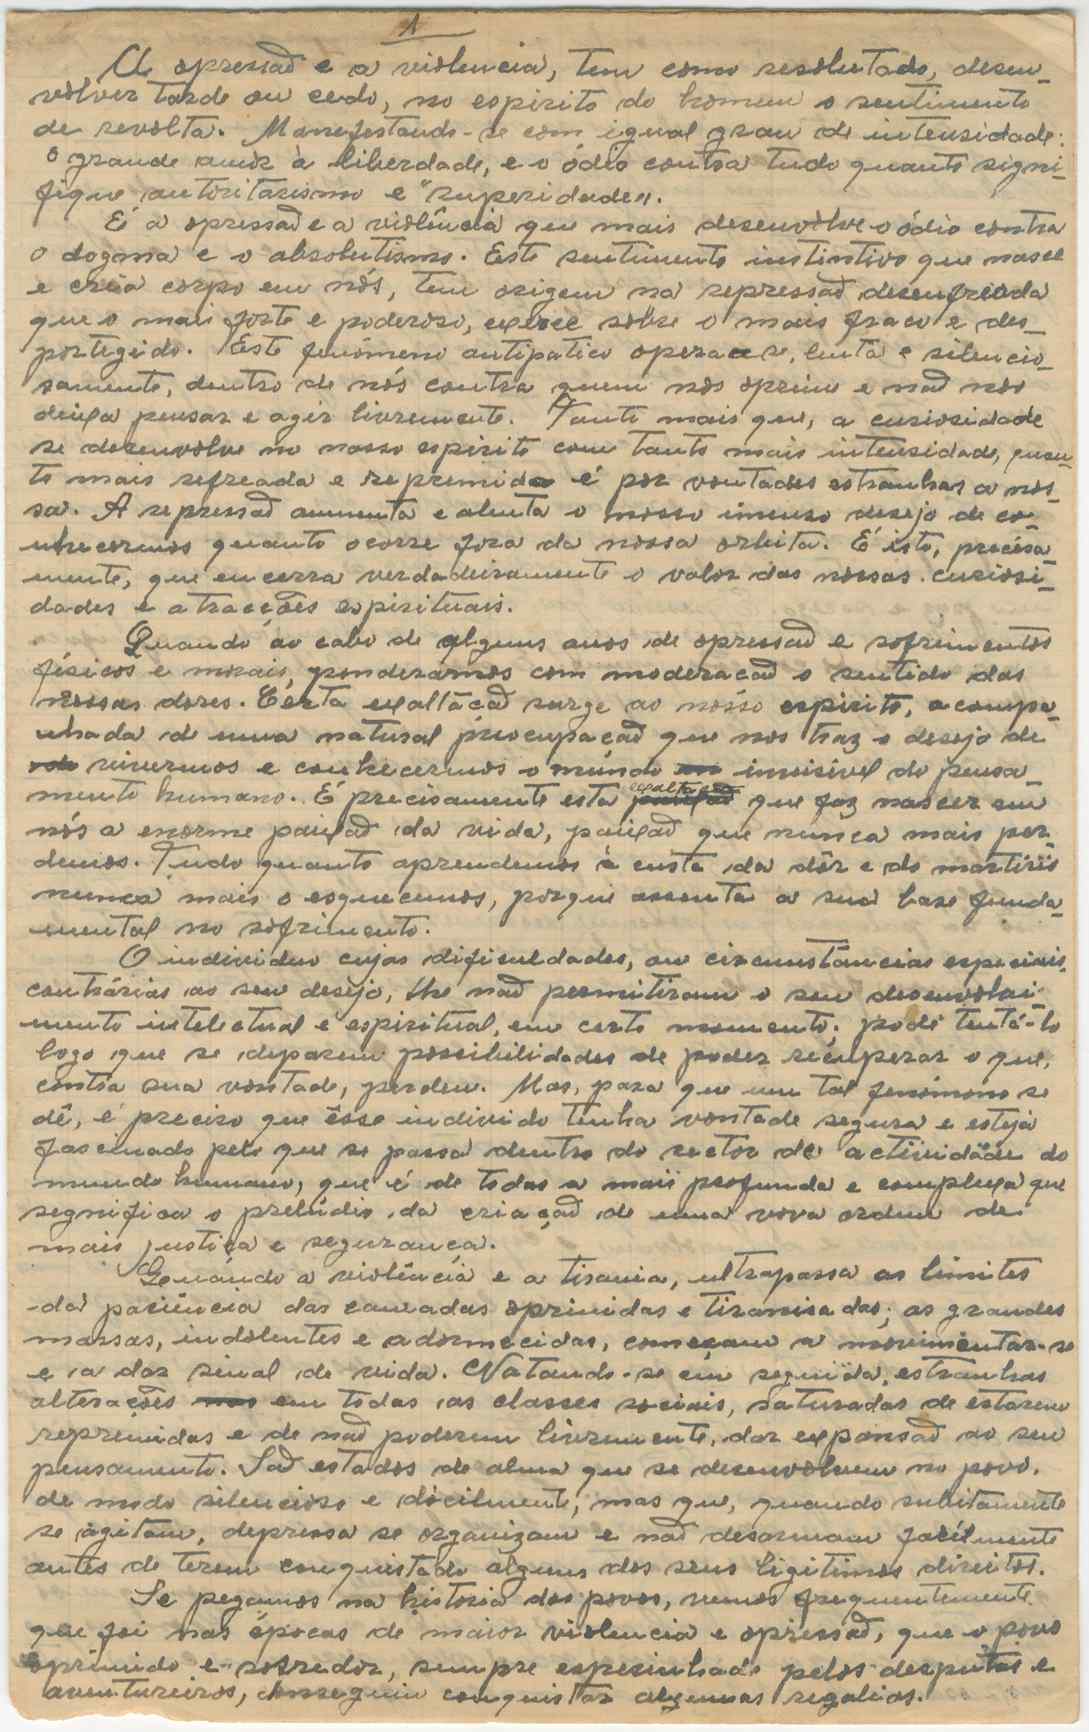 1
A opressão e a violencia, tem como resolutado, desen-
volver tarde ou cedo, no espirito do homem o sentimento
de revolta. Manefestando-se com igual grau de intensidade:
o grande amôr à liberdade, e o ódio contra tudo quanto signi-
fique autoritarismo e "superidade".
É a opressão e a violência que mais desenvolve o ódio contra
o dogma e o absolutismo. Este sentimento instintivo que nasce
e cria corpo em nós, tem origem na repressão desenfreada
que o mais forte e poderoso, exerce sôbre o mais fraco e des-
portegido. Este fenómeno antipatico opera-se, lenta e silencio-
samente, dentro de nós contra quem nos oprime e não nos
deixa pensar e agir livremente. Tanto mais que, a curiosidade
se desenvolve no nosso espirito com tanto mais intensidade, quan-
to mais refreada e repremida é por vontades estranhas a nos-
sa. A repressão aumenta e alenta o nosso imenso desejo de co-
nhecermos quanto ocorre fora da nossa orbita. É isto, precisa-
mente, que encerra verdadeiramente o valor das nossas curiosi-
dades e atracções espirituais.
Quando ao cabo de alguns anos de opressão e sofrimentos
físicos e morais, ponderámos com moderação o sentido das
nossas dores. Certa exaltação surge ao nósso espirito, acompa-
nhada de uma natural preocupação que nos traz o desejo de
vivermos e conhecermos o mundo invisivel do pensa-
mento humano. É precisamente esta exaltação que faz nascer em
nós a enorme paixão da vida, paixão que nunca mais per-
demos. Tudo quanto aprendemos à custa da dôr e do martirio
nunca mais o esquecemos, porque assenta a sua base funda-
mental no sofrimento.
O individuo cujas dificuldades, ou circunstâncias especiais
contrárias ao seu desejo, lhe não permitiram o seu desenvolvi-
mento intelectual e espiritual, em certo momento. pode tentá-lo
logo que se deparem possibilidades de poder récuperar o que,
contra sua vontade, perdeu. Mas, para que um tal fenómono se
dê, é preciso que êsse individo tenha vontade segura e esteja
fascinado pelo que se passa dentro do sector de actividade do
mundo humano, que é de todas a mais profunda e complexa que
segnifica o prelúdio da criação de uma nova ordem de
mais justiça e segurança.
Quando a violência e a tirania, ultrapassa os limites
da paciência das camadas oprimidas e tiranisadas; as grandes
massas, indolentes e adormecidas, começam a movimentar-se
e a dar sinal de vida. Notando-se em seguida, estranhas
alterações em todas as classes sociais, saturadas de estarem
repremidas e de não poderem livremente, dar expansão ao seu
pensamento. São estados de alma que se desenvolvem no povo.
de modo silencioso e dócilmente; mas que, quando subitamente
se agitam, depressa se organizam e não desarmam facilmente
antes de terem conquistado alguns dos seus ligitimos direitos.
Se pegâmos na historia dos povos, vemos frequentemente
que foi nas épocas de maior violencia e opressão, que o povo
oprimido e sofredor, sempre espesinhado pelos despotas e
aventureiros, conseguiu conquistar algumas regalias.